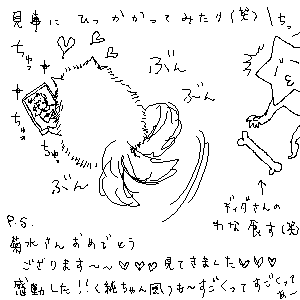 見事にひっかかってみたり(笑)
\ちっ
ちゅっ
ちゅっ
ちゅっ
ぶん
ぶん
ぶん
↑
ディダさんの
わな返す(笑)
P.S.
菊水さんおめでとう
ございます〜〜♡♡♡見てきました♡♡♡
感動した!!く純ちゃん風うも〜すごくってすごくって